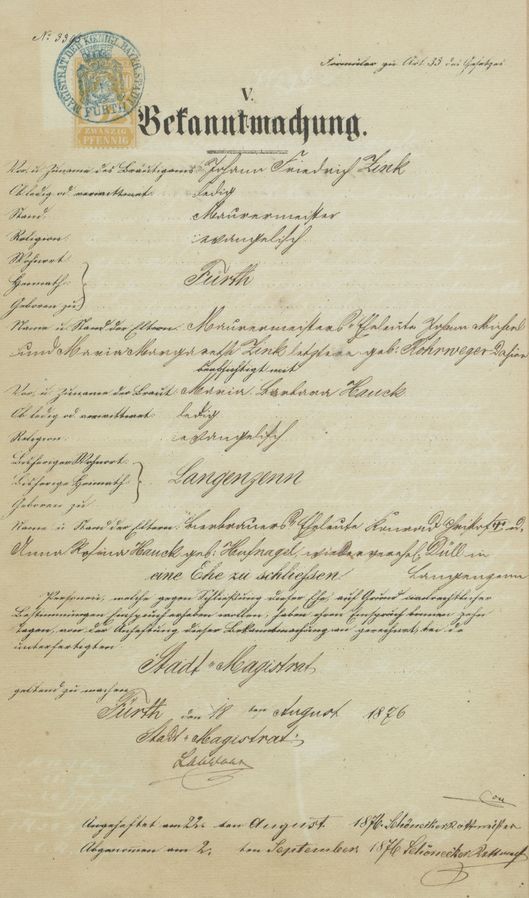 No. 33
MAGISTRAT DER KOENIGL. BAYER. STADT FÜRTH
ZWANZIG
PFENNIG
Formular zu Art. 33 des Gesetzes
V.
Bekanntmachung.
Vor. u. Zuname des Bräutigams: Johann Friedrich Zink
Ob ledig od. verwittwet: ledig
Stand: Maurermeister
Religion: evangelisch
Wohnort:
Heimath:
Fürth
Geboren zu
Name u. Stand der Eltern: Maurermeisters Eheleute Johann Michael
und Maria Margaretha Zink letztere geb: Rohrweger dahier
beabsichtigt mit
Vor. u. Zuname der Braut: Maria Barbara Hauck
Ob ledig od. verwittwet: ledig
Religion: evangelisch
Bisheriger Wohnort:
Bisherige Heimath:
Langenzenn
Geboren zu
Name u. Stand der Eltern: Bierbrauers Eheleute Konrad u.
Anna Rosina Hauck geb: Hofnagel, wiederverehel. Düll in
eine Ehe zu schliessen. Langenzenn
Personen, welche gegen Schließung dieser Ehe auf Grund
Bestimmungen Einspruch erheben wollen, haben ihren Einspruch binnen zehn
Tagen, von der Anheftung dieser Bekanntmachung an gerechnet, bei
unterfertigten
Stadt-Magistrat
geltend zu machen.
Fürth den 18 ten August 1876
Stadt-Magistrat:
Angeheftet am 22. ten August 1876. Schönecker Rottmeister
Abgenomen am 2. ten September 1876 Schönecker Rottmeist